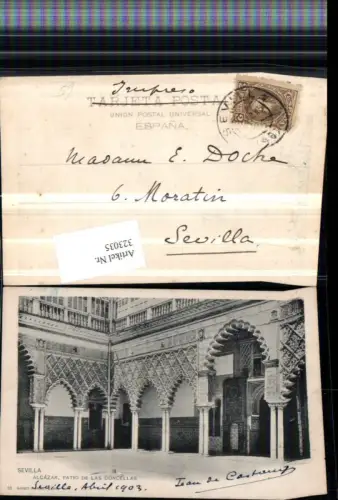 53
Impreso
TARJETA POSTAL
UNION POSTAL UNIVERSAL
ESPAÑA
Madame E. Doche
6. Moratin
Sevilla.
Artikel Nr.
323035
SEVILLA
ALCÁZAR, PATIO DE LAS DONCELLAS
Sevilla, Abril 1903.